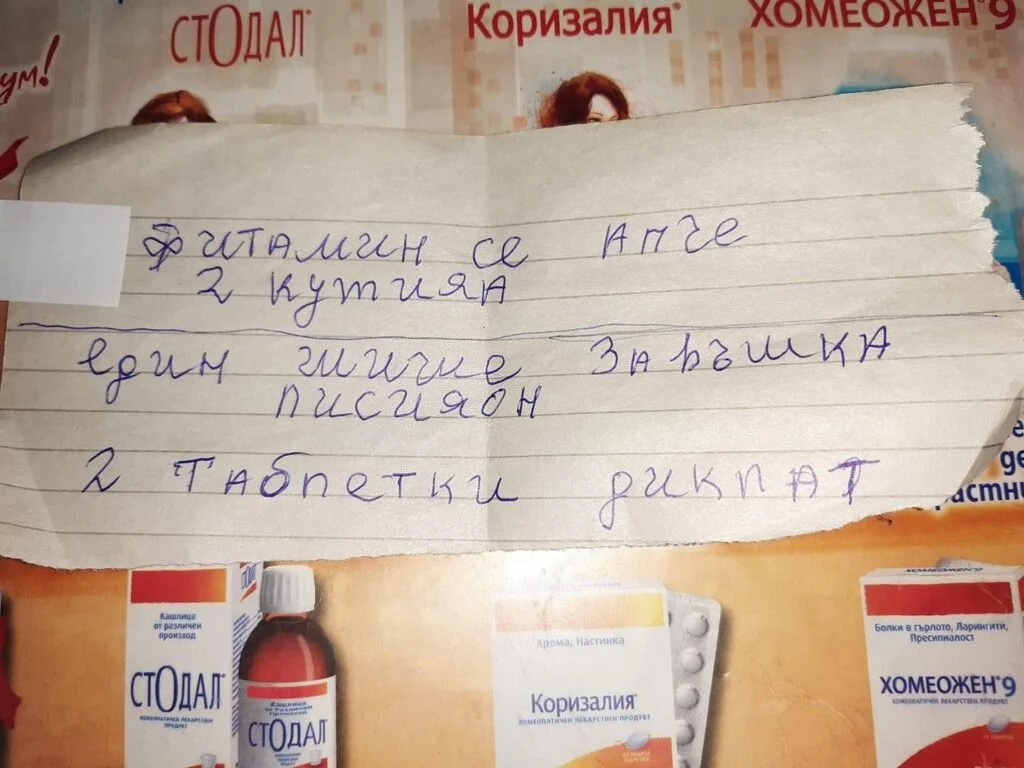 ум!
СТОДАЛ®
Коризалия®
ХОМЕОЖЕН®9
фитамин се апче
2 кутияа
един шише Заръшка
писияон
2 таблетки дикпат
де
растни
Кашлица
от различен
произход
СТОДАЛ®
ХОМЕОПАТИЧЕН ЛЕКАРСТВЕН
ПРОДУКТ
СТОДАЛ
Кашлица
от Различен
Произход
СТОДАЛ®
Хрема, Настинка
Коризалия®
ХОМЕОПАТИЧЕН ЛЕКАРСТВЕН ПРОДУКТ
Болки в гърлото, Ларингити,
Пресипналост
ХОМЕОЖЕН®9
ХОМЕОПАТИЧЕН ЛЕКАРСТВЕН ПРОДУКТ